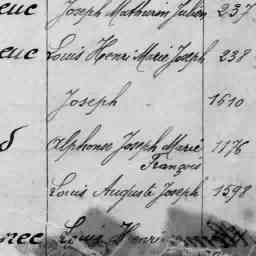 euc Joseph Mathurin Julien 237
euc Louis Henri Marie Joseph 238
Joseph 1610
d Alphonse Joseph Marie 1176
François
Louis Auguste Joseph 1598
nec Louis Henri